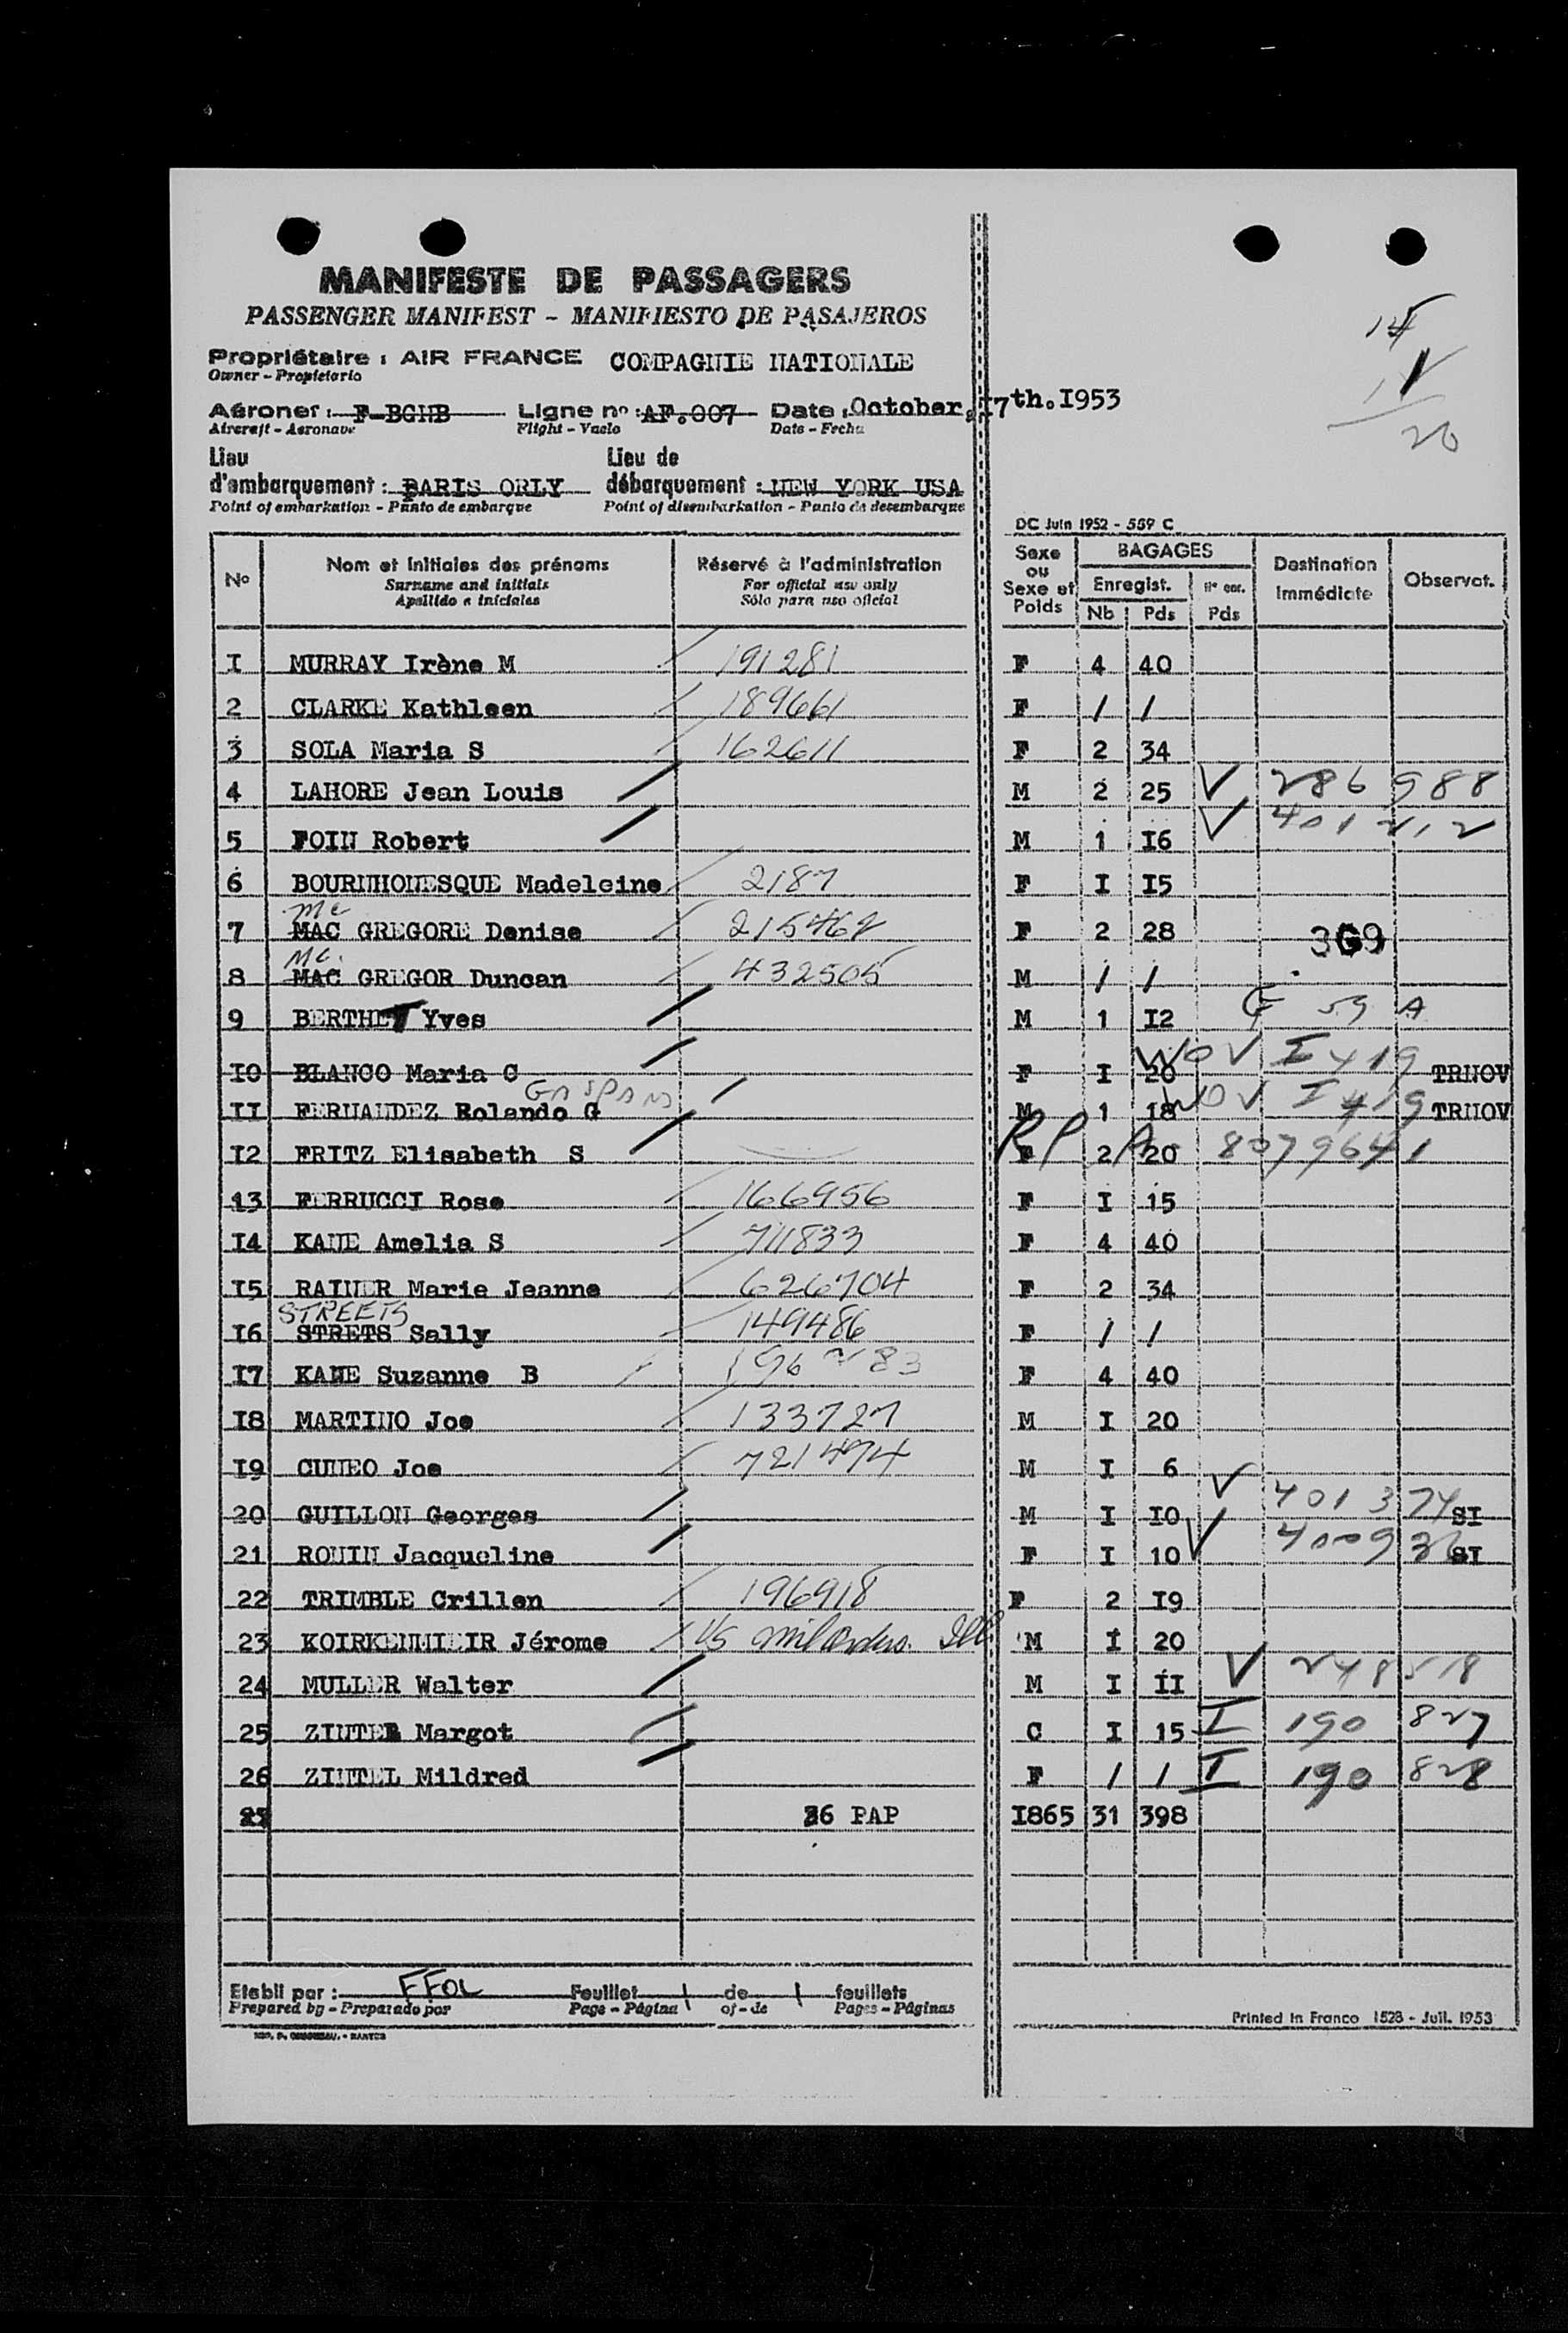 MANIFESTE DE PASSAGERS
PASSENGER MANIFEST - MANIFIESTO DE PASAJEROS
14
11
20
Propriétaire : AIR FRANCE COMPAGNIE NATIONALE
Owner - Propietario
Aéronef : F-BGNB Ligne nº : AF.007 Date : October 17th.I953
Aircraft - Aeronave Flight - Vuelo Date - Fecha
Lieu d'embarquement : PARIS ORLY Lieu de débarquement : NEW YORK USA
Point of embarkation - Punto de embarque Point of disembarkation - Punto de desembarque
DC Juin 1952 - 559 C
Nº Nom et initiales des prénoms Réservé à l'administration Sexe ou Sexe et Poids BAGAGES Destination Immédiate Observat.
Surname and initials For official use only Enregist. Nº enr.
Apellido e iniciales Sólo para uso oficial Nb Pds Pds
I MURRAY Irène M 191281 F 4 40
2 CLARKE Kathleen 189661 F / /
3 SOLA Maria S 162611 F 2 34
4 LAHORE Jean Louis M 2 25 V 286 988
5 FOIN Robert M 1 I6 V 401 212
6 BOURNHONESQUE Madeleine 2187 F I I5
Mc
7 MAC GREGORE Denise 215462 F 2 28 3G9
Mc.
8 MAC GREGOR Duncan 432505 M / /
9 BERTHET Yves M 1 I2 59 A
I0 BLANCO Maria C F I 20 WOV I 419 TRNOV
GASPAR
II FERNANDEZ Rolando G M 1 18 WOV I 419 TRNOV
I2 FRITZ Elisabeth S F 2 20 RP A 8079641
13 FERRUCCI Rose 166956 F I 15
I4 KANE Amelia S 711833 F 4 40
I5 RAINER Marie Jeanne 626704 F 2 34
STREETS
I6 STRETS Sally 149486 F / /
I7 KANE Suzanne B 196283 F 4 40
I8 MARTINO Joe 133727 M I 20
I9 CUNEO Joe 721474 M I 6
20 GUILLON Georges M I I0 V 401 374 SI
21 ROUIN Jacqueline F I 10 V 400936 SI
22 TRIMBLE Crillen 196918 F 2 I9
23 KOIRKENMIEIR Jérome US mil orders. M I 20
24 MULLER Walter M I II V 248518
25 ZINTEL Margot C I 15 I 190 827
26 ZINTEL Mildred F / / I 190 828
26 PAP I865 31 398
Etabli par : FFOL Feuillet 1 de 1 feuillets
Prepared by - Preparado por Page - Página of - de Pages - Páginas
Printed in France 1528 - Juil. 1953